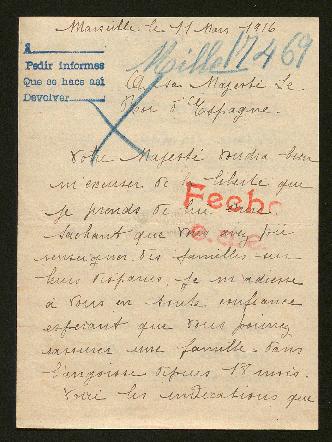 Marseille le 11 Mars 1916
A
Pedir informes
Que se hace así
Devolver
Mille 17469
A sa Majesté Le
Roi d'Espagne.
Votre Majesté voudra bien
m'excuser de la liberté que
je prends de lui
Fecho
sachant que vous avez pu
renseigner des familles sur
leurs disparus, je m'adresse
à vous en toute confiance
espérant que vous pourrez
rassurer une famille dans
l'angoisse depuis 18 mois.
Voici les indications que